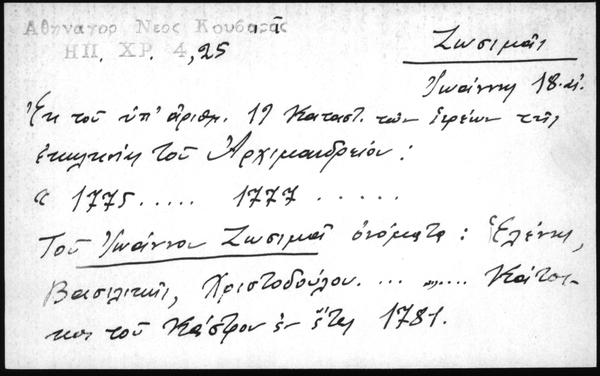 Αθηναγορ Νεος Κουβαρᾶς
ΗΠ. ΧΡ. 4,25
Ζωσιμᾶς
Ἰωάννης 18. αἰ.
Ἐκ τοῦ ὑπ' ἀριθμ. 19 Καταστ. τῶν ἱερέων τῆς
ἐκκλησίας τοῦ Ἀρχιμανδρείου:
" 1775..... 1777 ......
Τοῦ Ἰωάννου Ζωσιμᾶ ὀνόματα: Ἑλένης,
Βασιλικῆς, Χριστοδούλου.... ....... Κάτοι-
κοι τοῦ Κάστρου ἐν ἔτει 1781.